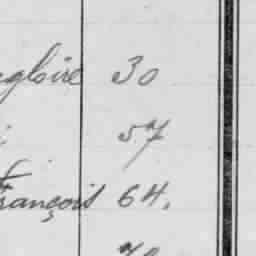 gloire 30
57
françois 64.